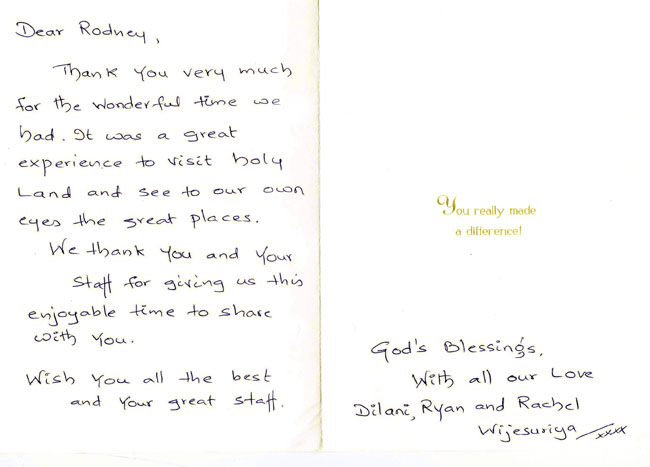 Dear Rodney,
Thank you very much
for the wonderful time we
had. It was a great
experience to visit holy
Land and see to our own
eyes the great places.
We thank you and your
staff for giving us this
enjoyable time to share
with you.
Wish you all the best
and your great staff.
You really made
a difference!
God's Blessings,
With all our Love
Dilani, Ryan and Rachel
Wijesuriya xxxx